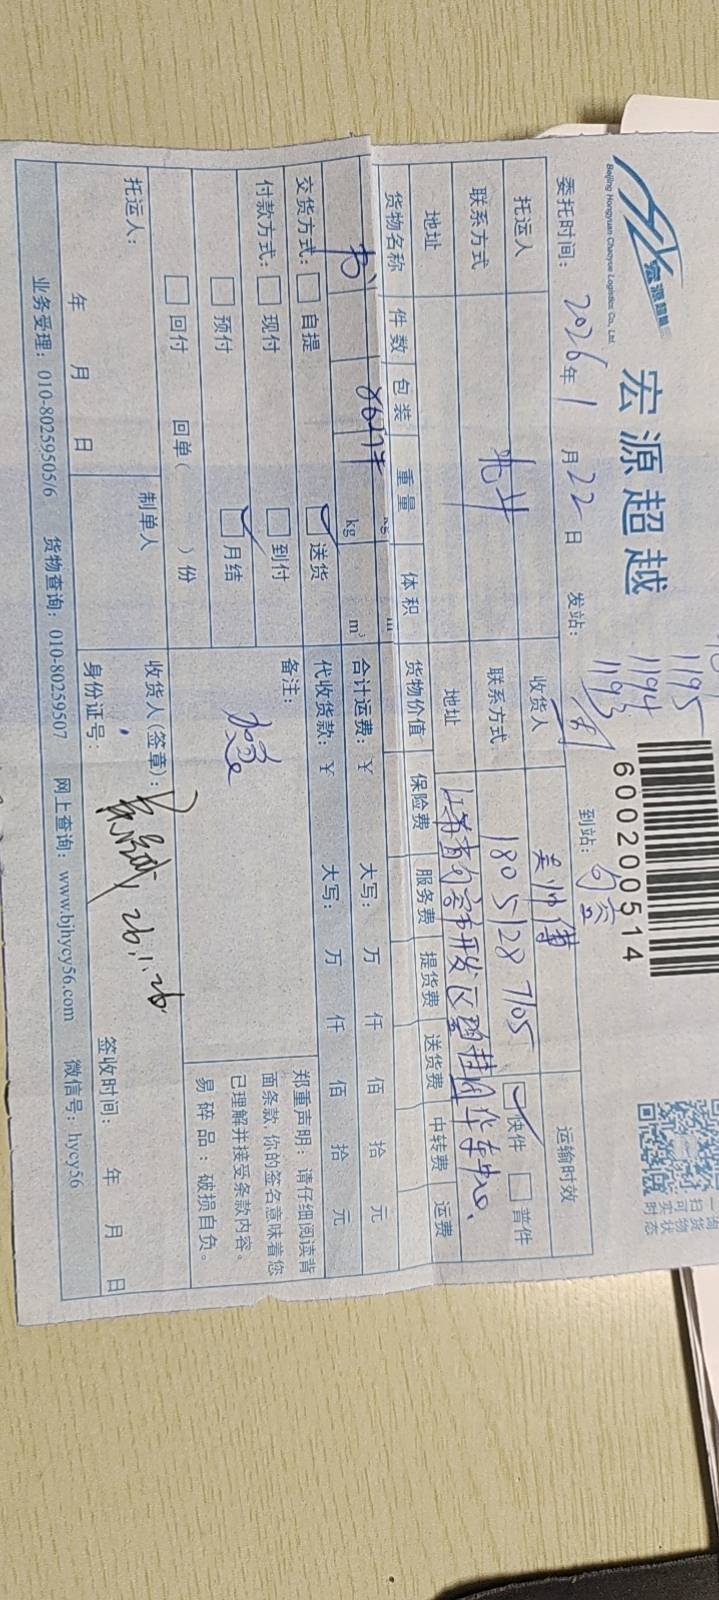 宏源超越
Beijing Hongyuan Chaoyue Logistics Co., Ltd.
宏源超越
1195
1194
1193
600200514
委托时间: 2026年1月22日 发站: 到站: 句容
托运人 收货人 吴师傅 运输时效
联系方式 联系方式 180 5128 7105 快件 普件
地址 地址 江苏省句容市开发区
货物名称 件数 包装 重量 体积 货物价值 保险费 服务费 提货费 送货费 中转费 运费
书 862件 kg m³ 合计运费: ¥ 大写: 万 仟 佰 拾 元
交货方式: 自提 送货 代收货款: ¥ 大写: 万 仟 佰 拾 元
付款方式: 现付 到付 备注:
预付 月结
回付 回单( )份
郑重声明:请仔细阅读背
面条款 你的签名意味着您
已理解并接受条款内容。
易碎品:破损自负。
托运人: 制单人 收货人(签章): 26.1.26
年 月 日 身份证号: 签收时间: 年 月 日
业务受理: 010-80259505/6 货物查询: 010-80259507 网上查询: www.bjhycy56.com 微信号: hycy56